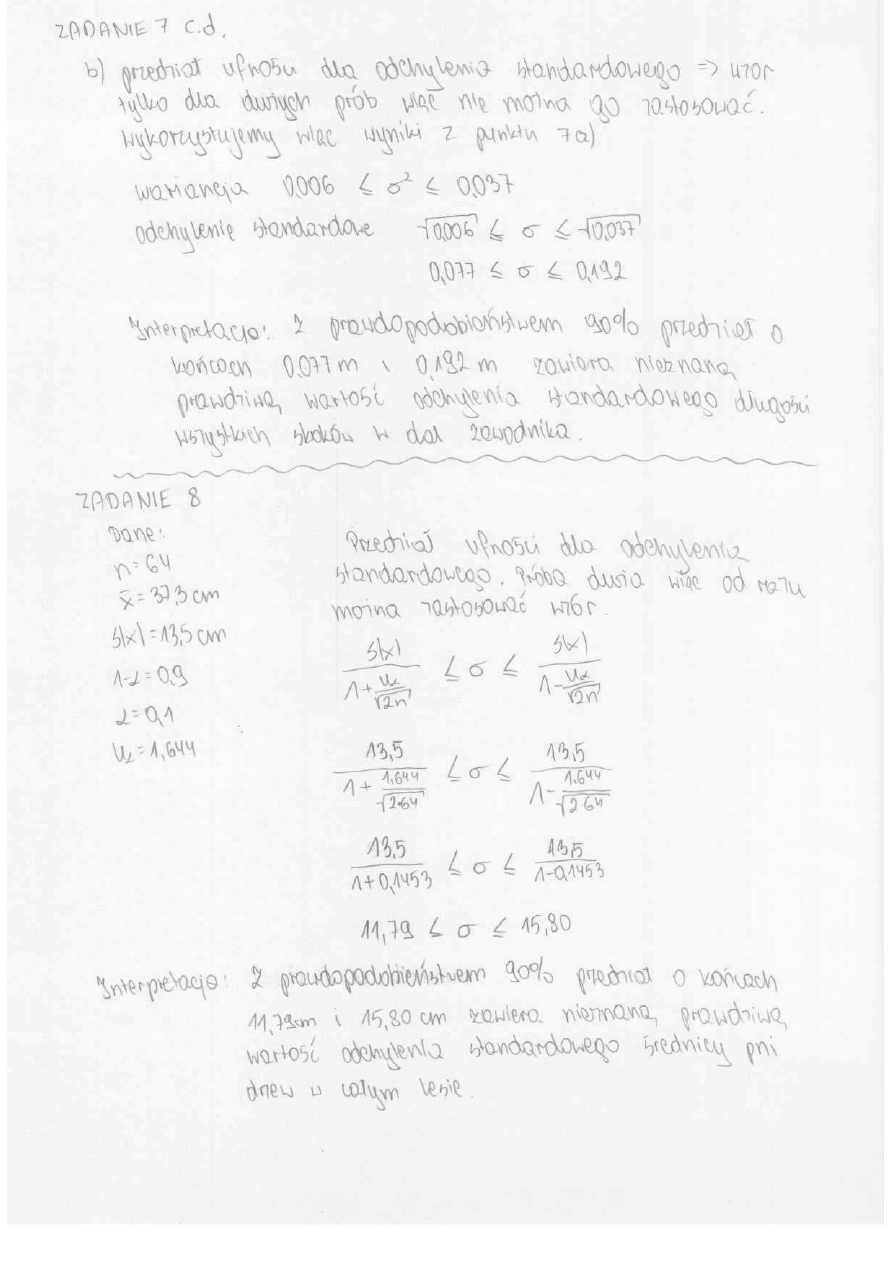 ZADANIE 7 c.d.
b) przedział ufności dla odchylenia standardowego => wzór
tylko dla dużych prób więc nie można go zastosować.
Wykorzystujemy więc wyniki z punktu 7a)
wariancja 0,006 ≤ σ² ≤ 0,037
odchylenie standardowe √0,006 ≤ σ ≤ √0,037
0,077 ≤ σ ≤ 0,192
Interpretacja: Z prawdopodobieństwem 90% przedział o
końcach 0,077 m i 0,192 m zawiera nieznaną
prawdziwą wartość odchylenia standardowego długości
wszystkich skoków w dal zawodnika.
ZADANIE 8
Dane:
n=64
x̄=37,3 cm
s(x)=13,5 cm
1-α=0,9
α=0,1
uα=1,644
Przedział ufności dla odchylenia
standardowego. Próba duża więc od razu
można zastosować wzór.
s(x)/(1+uα/√2n) ≤ σ ≤ s(x)/(1-uα/√2n)
13,5/(1+1,644/√2·64) ≤ σ ≤ 13,5/(1-1,644/√2·64)
13,5/(1+0,1453) ≤ σ ≤ 13,5/(1-0,1453)
11,79 ≤ σ ≤ 15,80
Interpretacja: Z prawdopodobieństwem 90% przedział o końcach
11,79cm i 15,80 cm zawiera nieznaną, prawdziwą
wartość odchylenia standardowego średnicy pni
drzew w całym lesie.